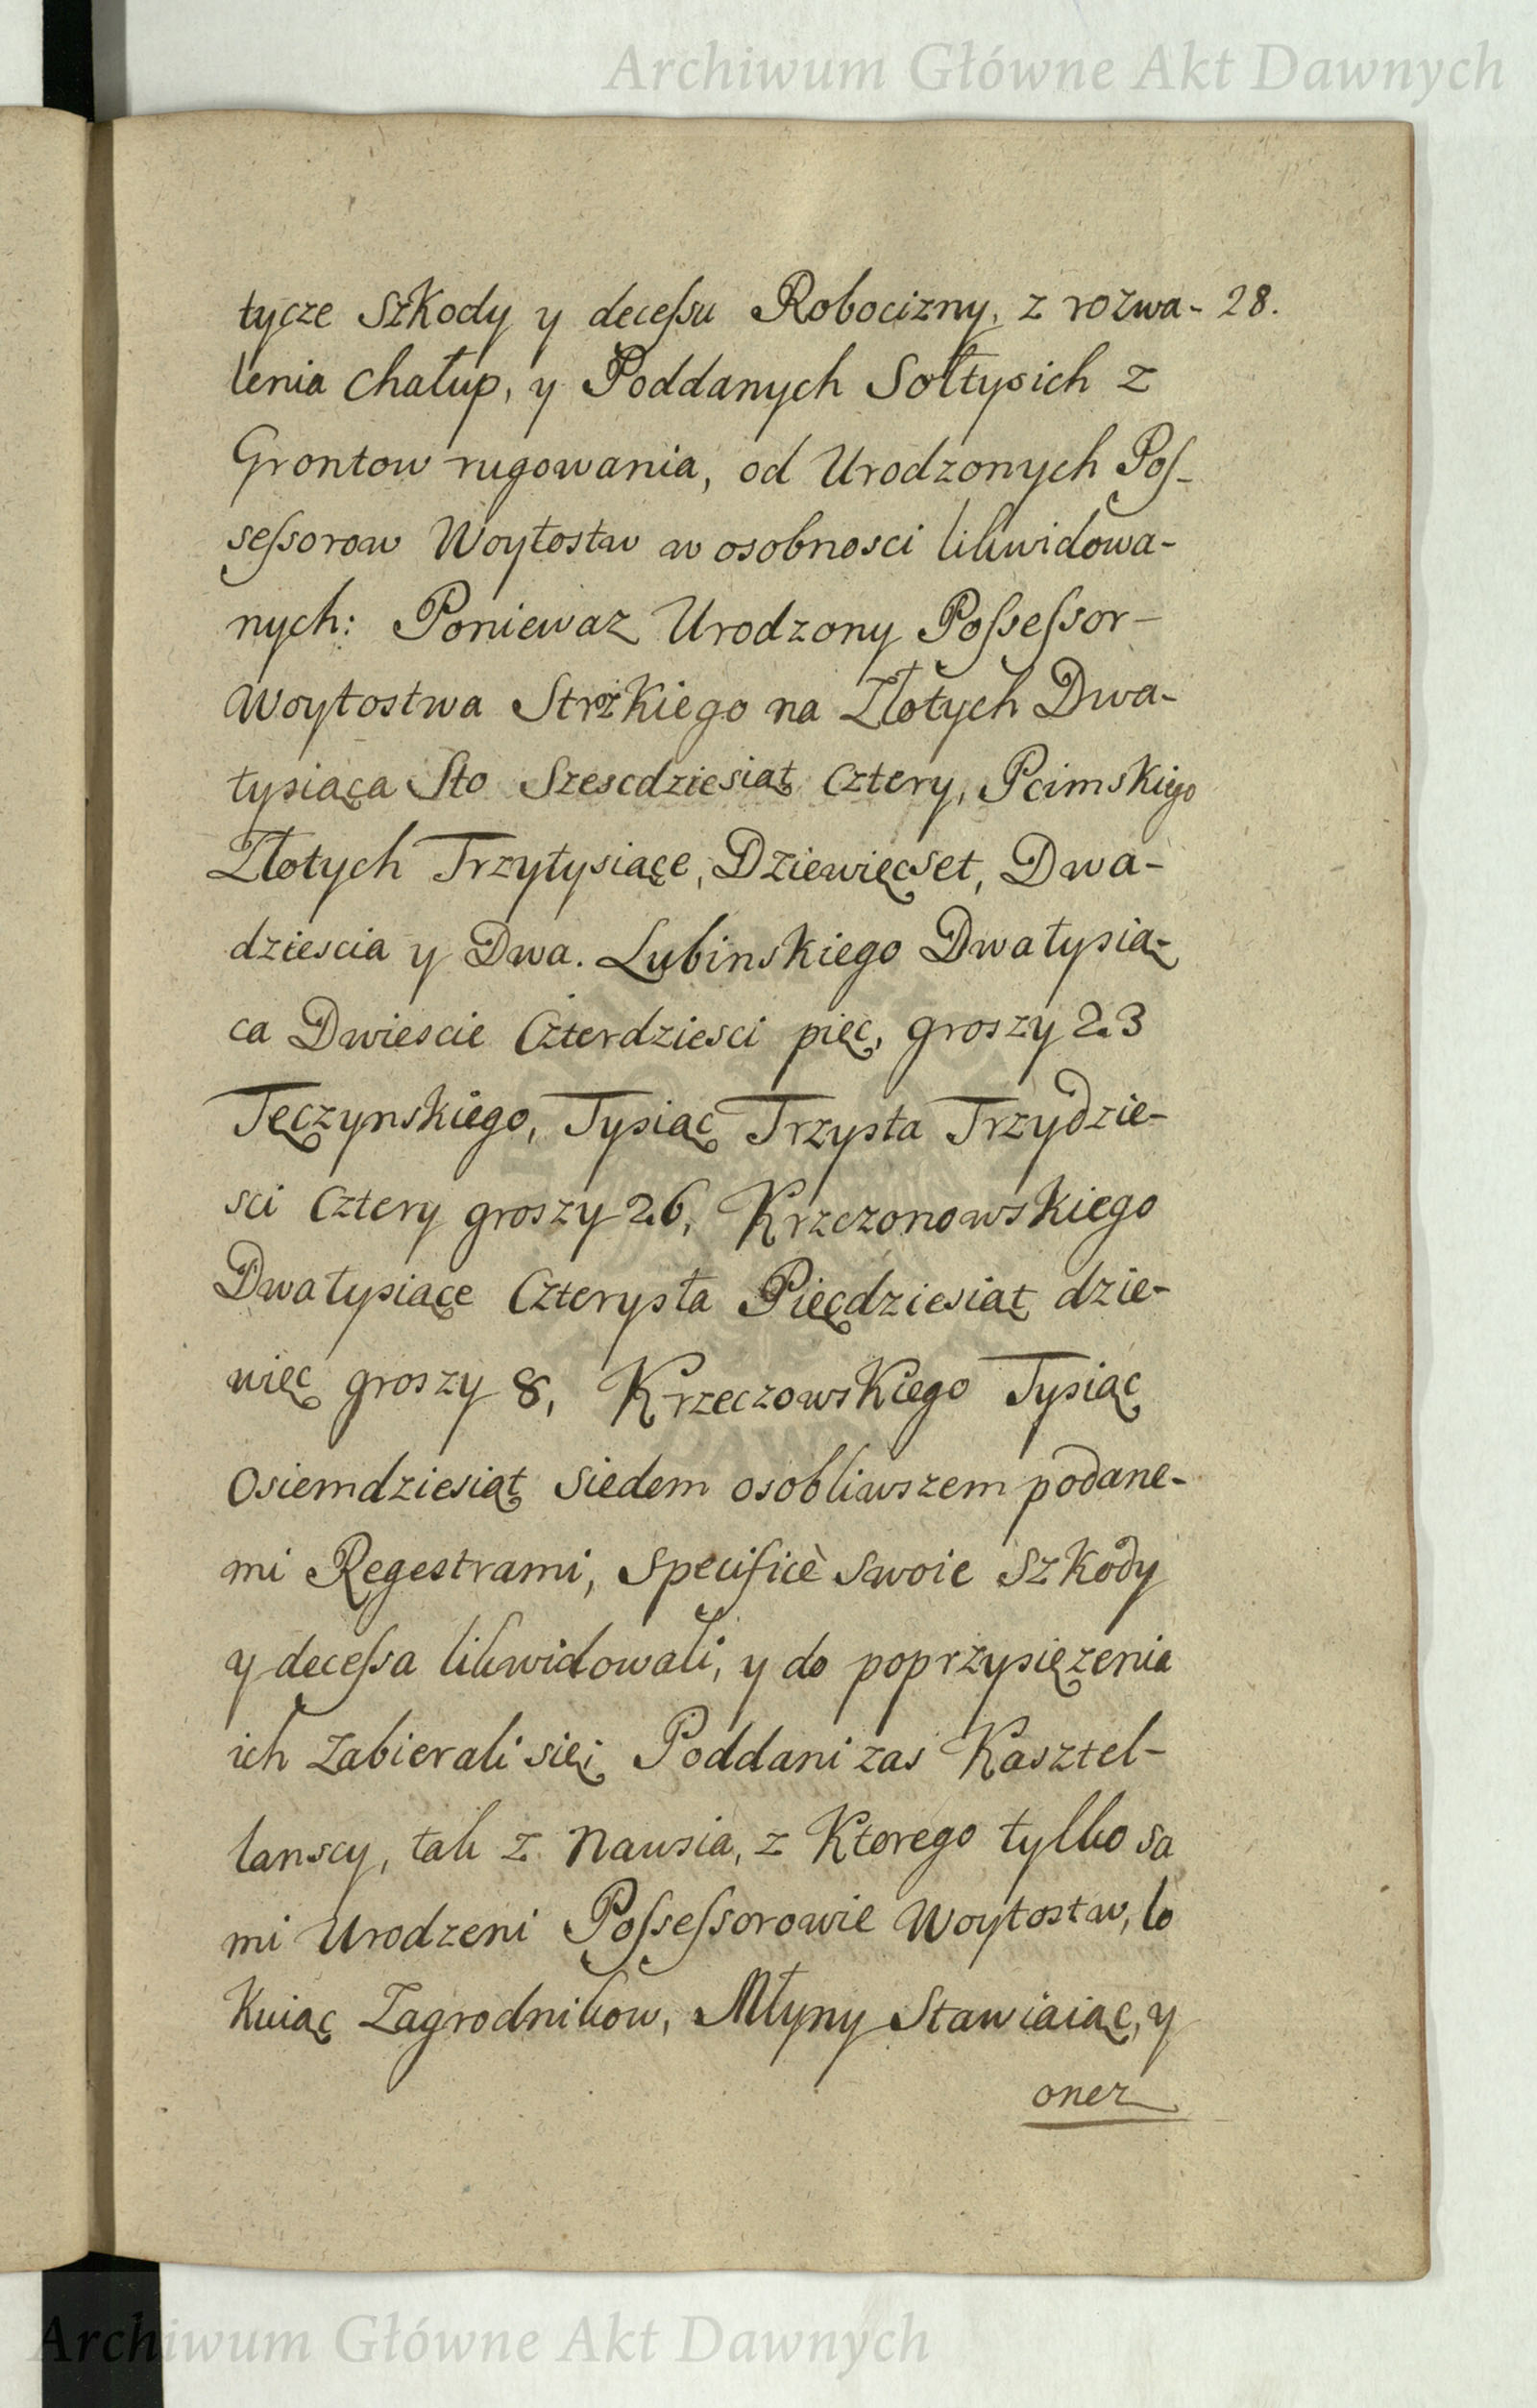 Archiwum Główne Akt Dawnych
tycze Szkody y decessu Robocizny, z rozwa- 28.
lenia chałup, y Poddanych Sołtysich z
Grontow rugowania, od Urodzonych Pos-
sessorow Woytostw w osobnosci likwidowa-
nych: Poniewaz Urodzony Possessor-
Woytostwa Stržkiego na Złotych Dwa-
tysiąca Sto Szescdziesiąt Cztery, Pcimskiego
Złotych Trzytysiące, Dziewięcset, Dwa-
dziescia y Dwa. Lubinskiego Dwatysią-
ca Dwiescie Czterdziesci pięc, groszy 23
Tęczynskiego, Tysiąc Trzysta Trzydzie-
sci Cztery groszy 26, Krzczonowskiego
Dwatysiące Czterysta Pięcdziesiąt dzie-
więc groszy 8, Krzeczowskiego Tysiąc
Osiemdziesiąt Siedem osobliwszem podane-
mi Regestrami, Specificè Swoie Szkody
y decessa likwidowali, y do poprzysięzenia
ich zabierali się; Poddani zas Kasztel-
lanscy, tak z Nawsia, z Ktorego tylko sa
mi Urodzeni Possessorowie Woytostw, lo
Kuiąc Zagrodnikow, Młyny Stawiaiąc, y
oner
Archiwum Główne Akt Dawnych